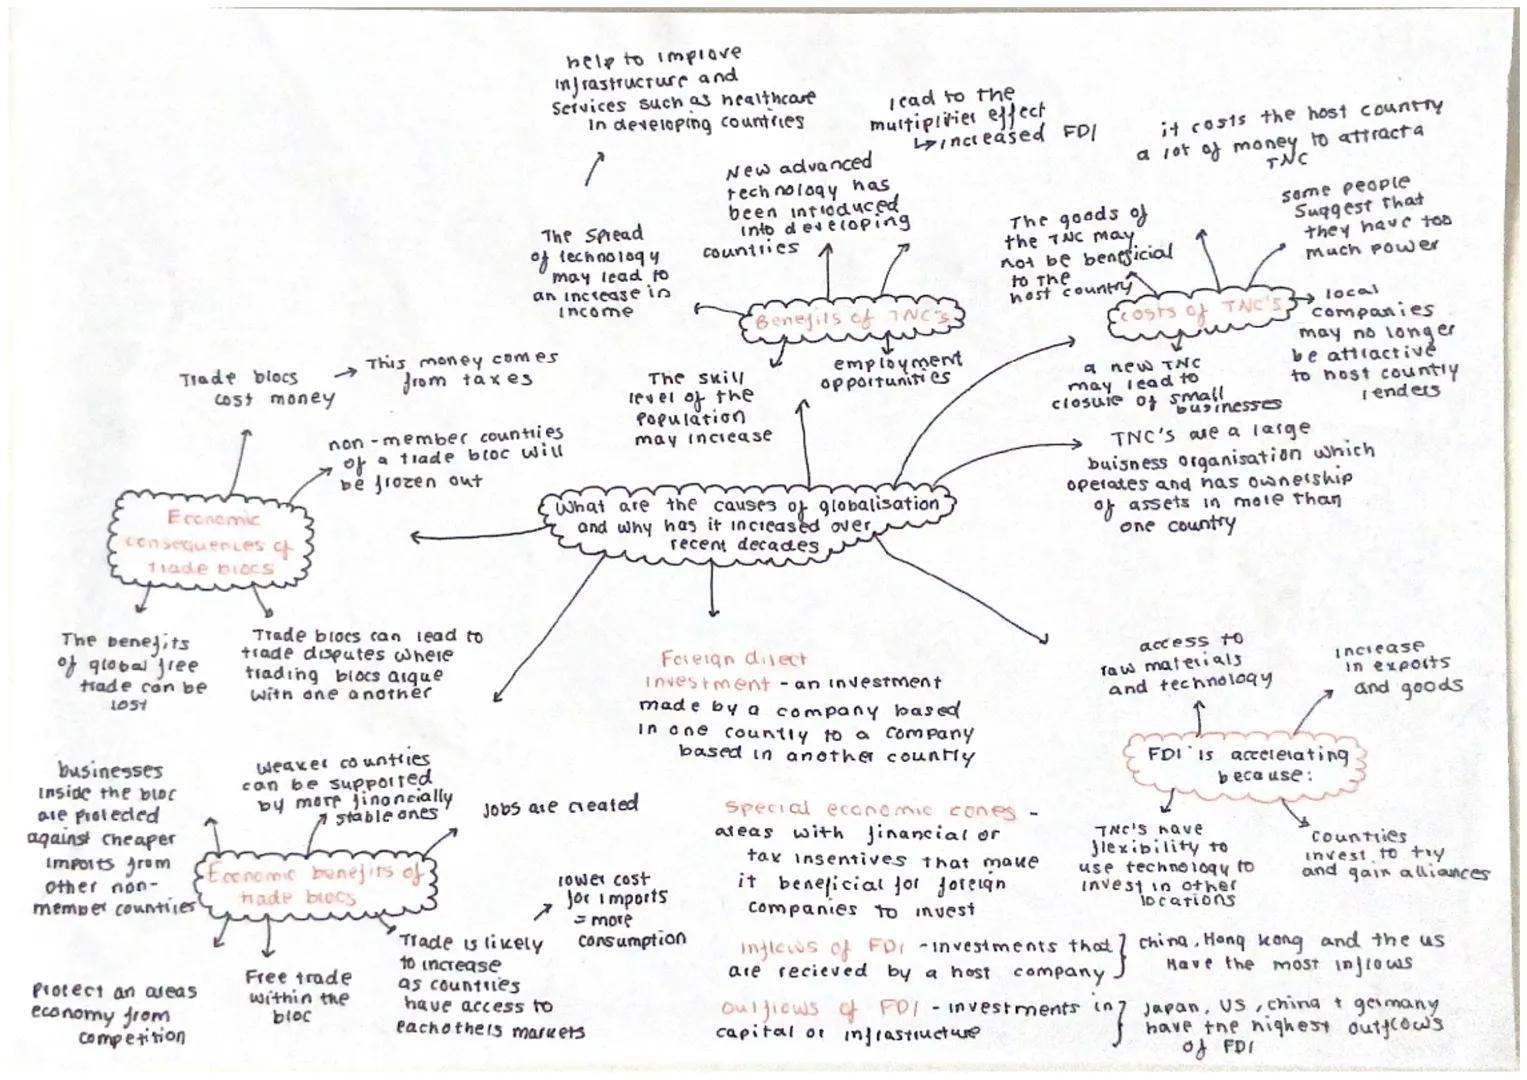 help to improve
infrastructure and
services such as healthcare
in developing countries
lead to the
multiplier effect
↳ increased FDI
it costs the host country
a lot of money to attract a
TNC
New advanced
technology has
been introduced
into developing
countries
some people
suggest that
they have too
much power
The spread
of technology
may lead to
an increase in
income
The goods of
the TNC may
not be beneficial
to the
host country
Benefits of TNC's
costs of TNC's
local
companies
may no longer
be attractive
to host country
lenders
The skill
level of the
population
may increase
employment
opportunities
a new TNC
may lead to
closure of small
businesses
Trade blocs
cost money
→ This money comes
from taxes
non-member countries
of a trade bloc will
be frozen out
TNC's are a large
buisness organisation which
operates and has ownership
of assets in more than
one country
What are the causes of globalisation
and why has it increased over
recent decades
Economic
consequences of
trade blocs
The benefits
of global free
trade can be
lost
Trade blocs can lead to
trade disputes where
trading blocs argue
with one another
Foreign direct
investment - an investment
made by a company based
in one country to a company
based in another country
access to
raw materials
and technology
increase
in exports
and goods
FDI is accelerating
because:
TNC's have
flexibility to
use technology to
invest in other
locations
countries
invest to try
and gain alliances
businesses
inside the bloc
are protected
against cheaper
imports from
other non-
member countries
weaker countries
can be supported
by more financially
stable ones
Jobs are created
Economic benefits of
trade blocs
Protect an areas
economy from
competition
Free trade
within the
bloc
Trade is likely
to increase
as countries
have access to
eachothers markets
lower cost
for imports
= more
consumption
Special economic cones -
areas with financial or
tax insentives that make
it beneficial for foreign
companies to invest
Inflows of FDI - investments that
are recieved by a host company
china, Hong kong and the us
Have the most inflows
outflows of FDI - investments in
capital or infrastructure
Japan, US, china + germany
have the highest outflows
of FDI